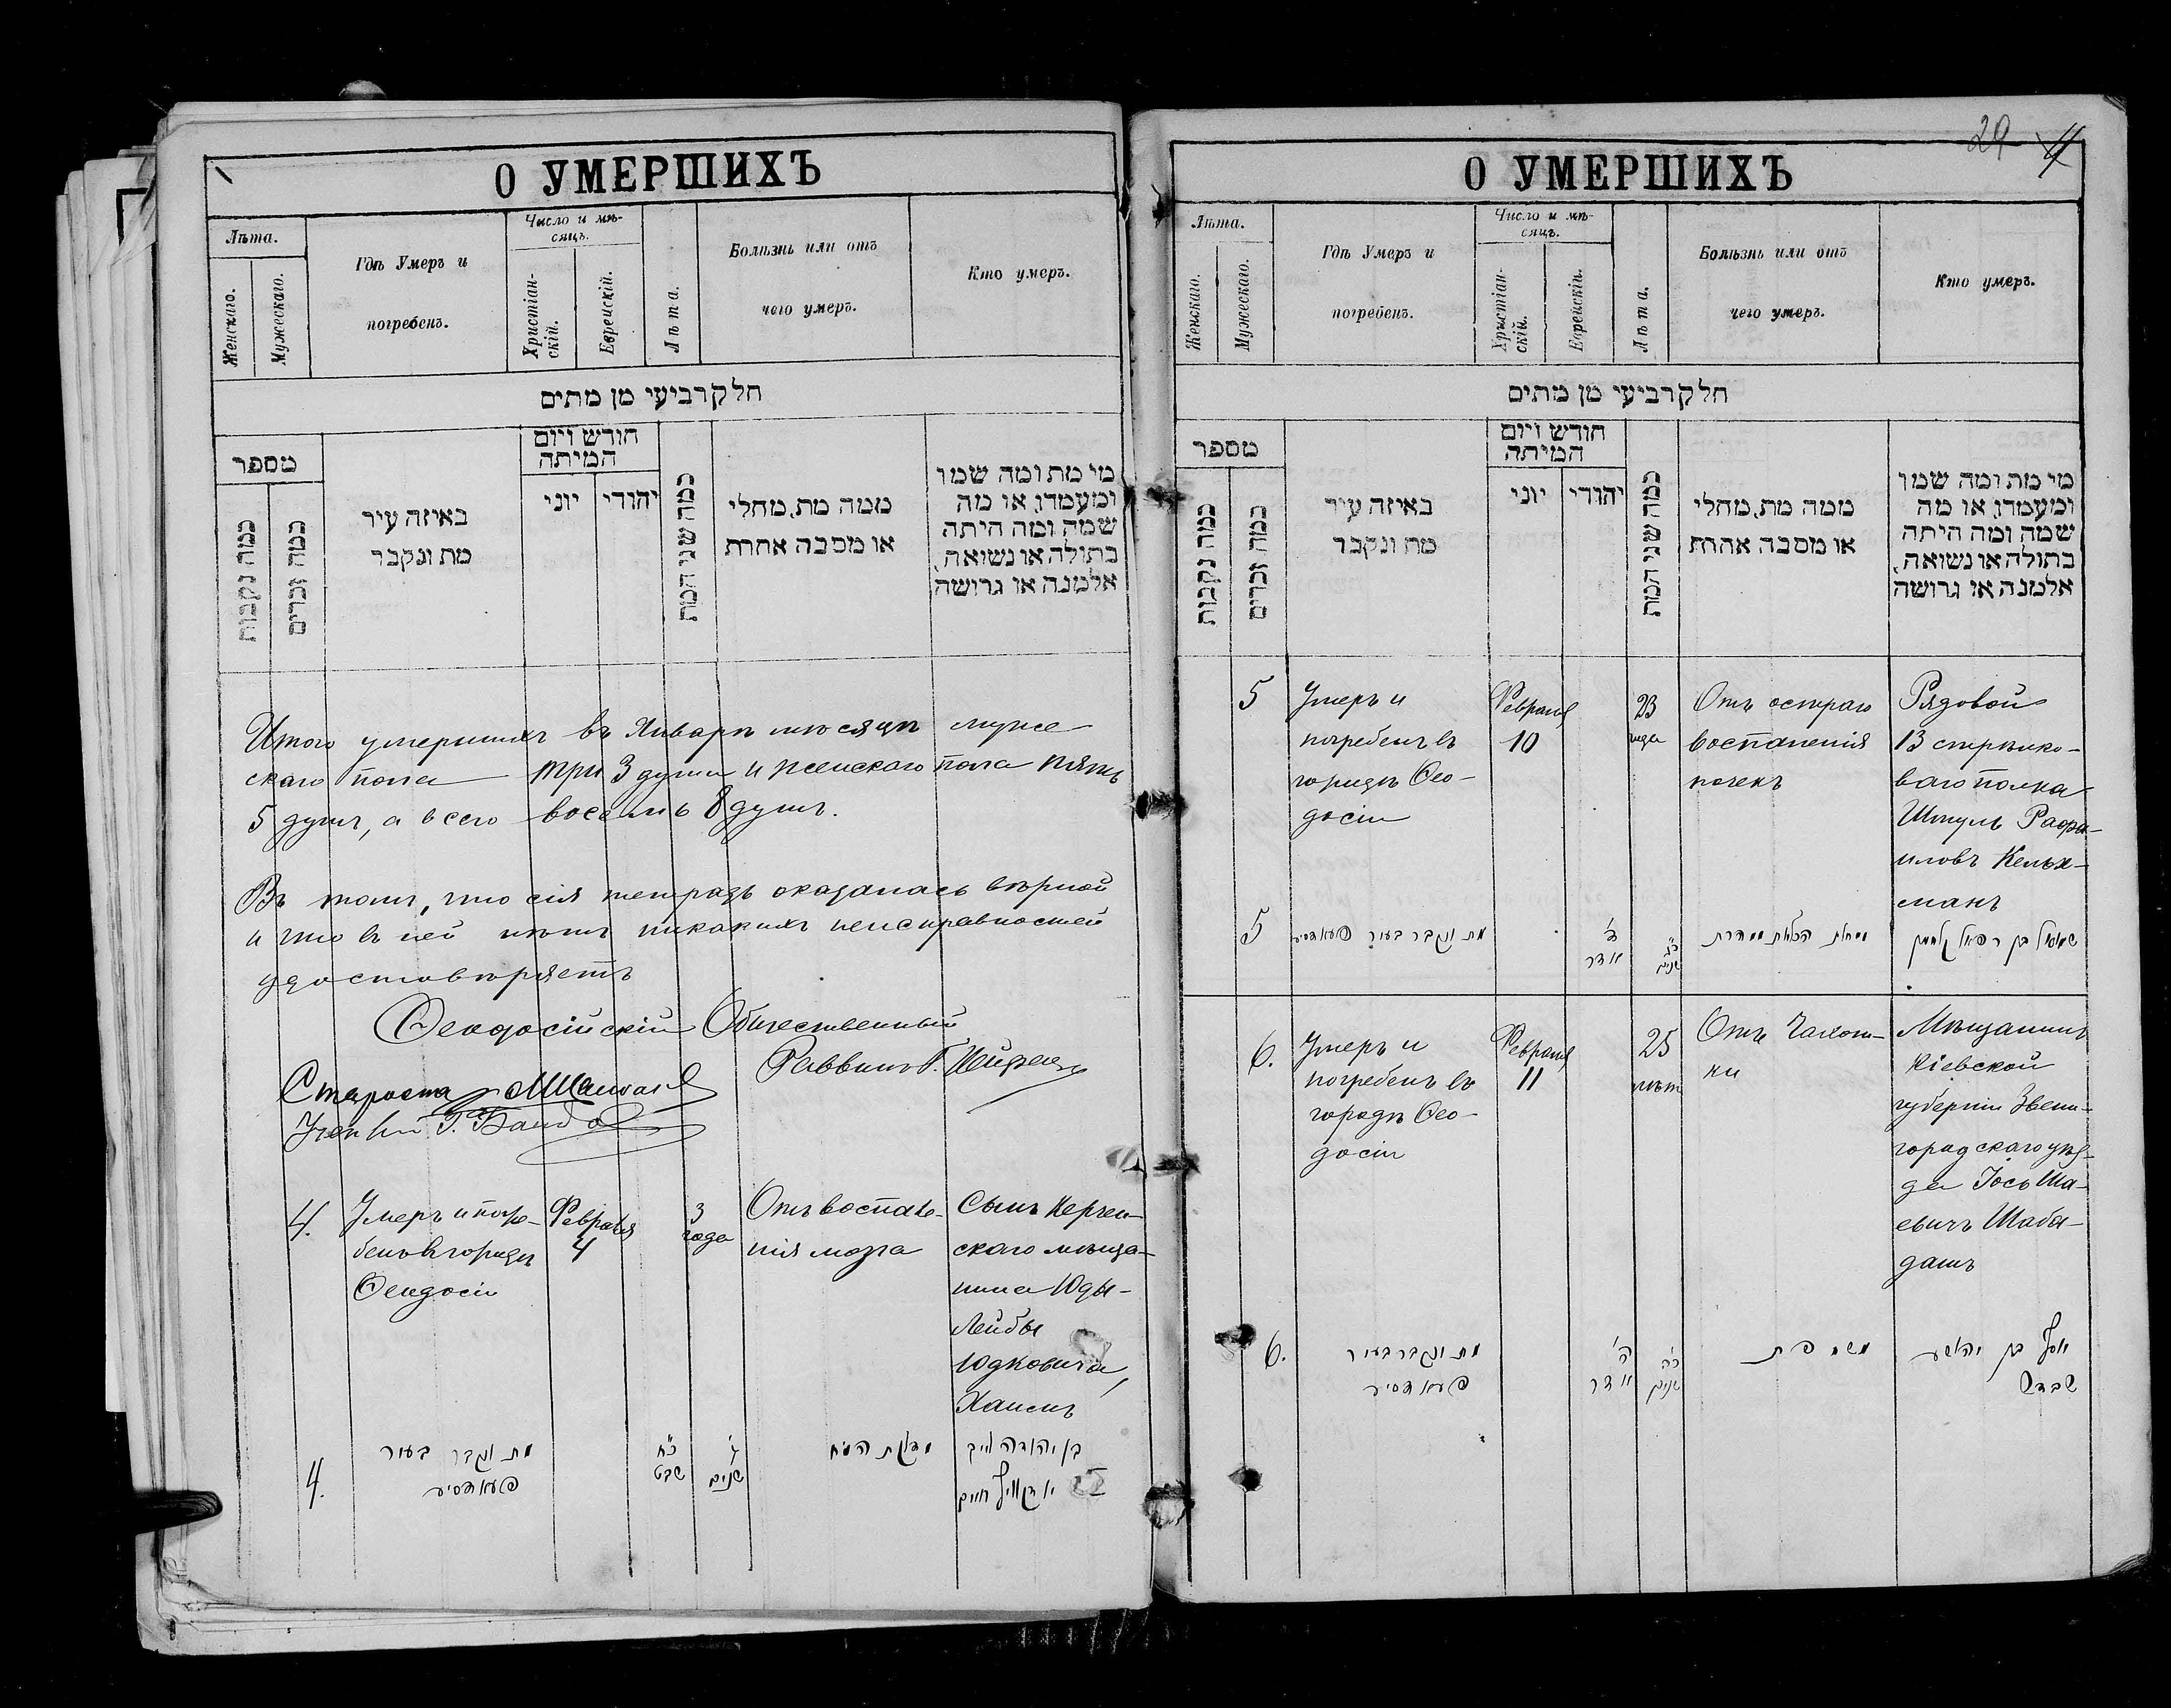 О УМЕРШИХЪ
Лѣта.
Женскаго.
Мужескаго.
Гдѣ Умеръ и
погребенъ.
Число и мѣ-
сяцъ.
Христіан-
скій.
Еврейскій.
Лѣта.
Болѣзнь или отъ
чего умеръ.
Кто умеръ.
חלק רביעי מן מתים
מספר
כמה נקבות
כמה זכרים
באיזה עיר
מת ונקבר
חודש ויום
המיתה
יוני
יהודי
כמה שני המת
ממה מת, מחלי
או מסבה אחרת
מי מת ומה שמו
ומעמדו, או מה
שמה ומה היתה
בתולה או נשואה,
אלמנה או גרושה
Итого умершихъ въ Январѣ мѣсяцѣ муже-
скаго пола три 3 души и женскаго пола пять
5 душъ, а всего восемь 8 душъ.
Въ томъ, что сія тетрадь оказалась вѣрной
и что въ ней нѣтъ никакихъ неисправностей
удостовѣряетъ
Ѳеодосійскій Общественный
Раввинъ Г.
Староста
4.
Умеръ и погре-
бенъ в городѣ
Ѳеодосіи
Февраля
4
3
года
Отъ воспале-
нія мозга
Сынъ Керчен-
скаго мѣща-
нина Юды-
Лейбы
Юдковича,
Хаимъ
4.
מת ונקבר בעיר
פעאדסיע
כ״ח
שבט
ג׳
שנים
מדלקת המוח
בן יהודה לייב
חיים
О УМЕРШИХЪ
29
Лѣта.
Женскаго.
Мужескаго.
Гдѣ Умеръ и
погребенъ.
Число и мѣ-
сяцъ.
Христіан-
скій.
Еврейскій.
Лѣта.
Болѣзнь или отъ
чего умеръ.
Кто умеръ.
חלק רביעי מן מתים
מספר
כמה נקבות
כמה זכרים
באיזה עיר
מת ונקבר
חודש ויום
המיתה
יוני
יהודי
כמה שני המת
ממה מת, מחלי
או מסבה אחרת
מי מת ומה שמו
ומעמדו, או מה
שמה ומה היתה
בתולה או נשואה,
אלמנה או גרושה
5
Умеръ и
погребенъ въ
городѣ Ѳео-
досіи
Февраля
10
23
года
Отъ остраго
воспаленія
почекъ
Рядовой
13 стрѣлко-
ваго полка
Шмуль Рафа-
иловъ Кельх-
манъ
5
מת ונקבר בעיר פעאדסיע
ד׳
אדר
כ״ג
שנים
מחלת הכליות
שמואל בן רפאל
6.
Умеръ и
погребенъ въ
городѣ Ѳео-
досіи
Февраля
11
25
лѣтъ
Отъ Чахот-
ки
Мѣщанинъ
Кіевской
губерніи Звени-
городскаго уѣз-
да Іось Ша-
евичъ Шаба-
дашъ
6.
מת ונקבר בעיר
פעאדסיע
ה׳
אדר
כ״ה
שנים
משחפת
יוסף בן יהושע
שבדש